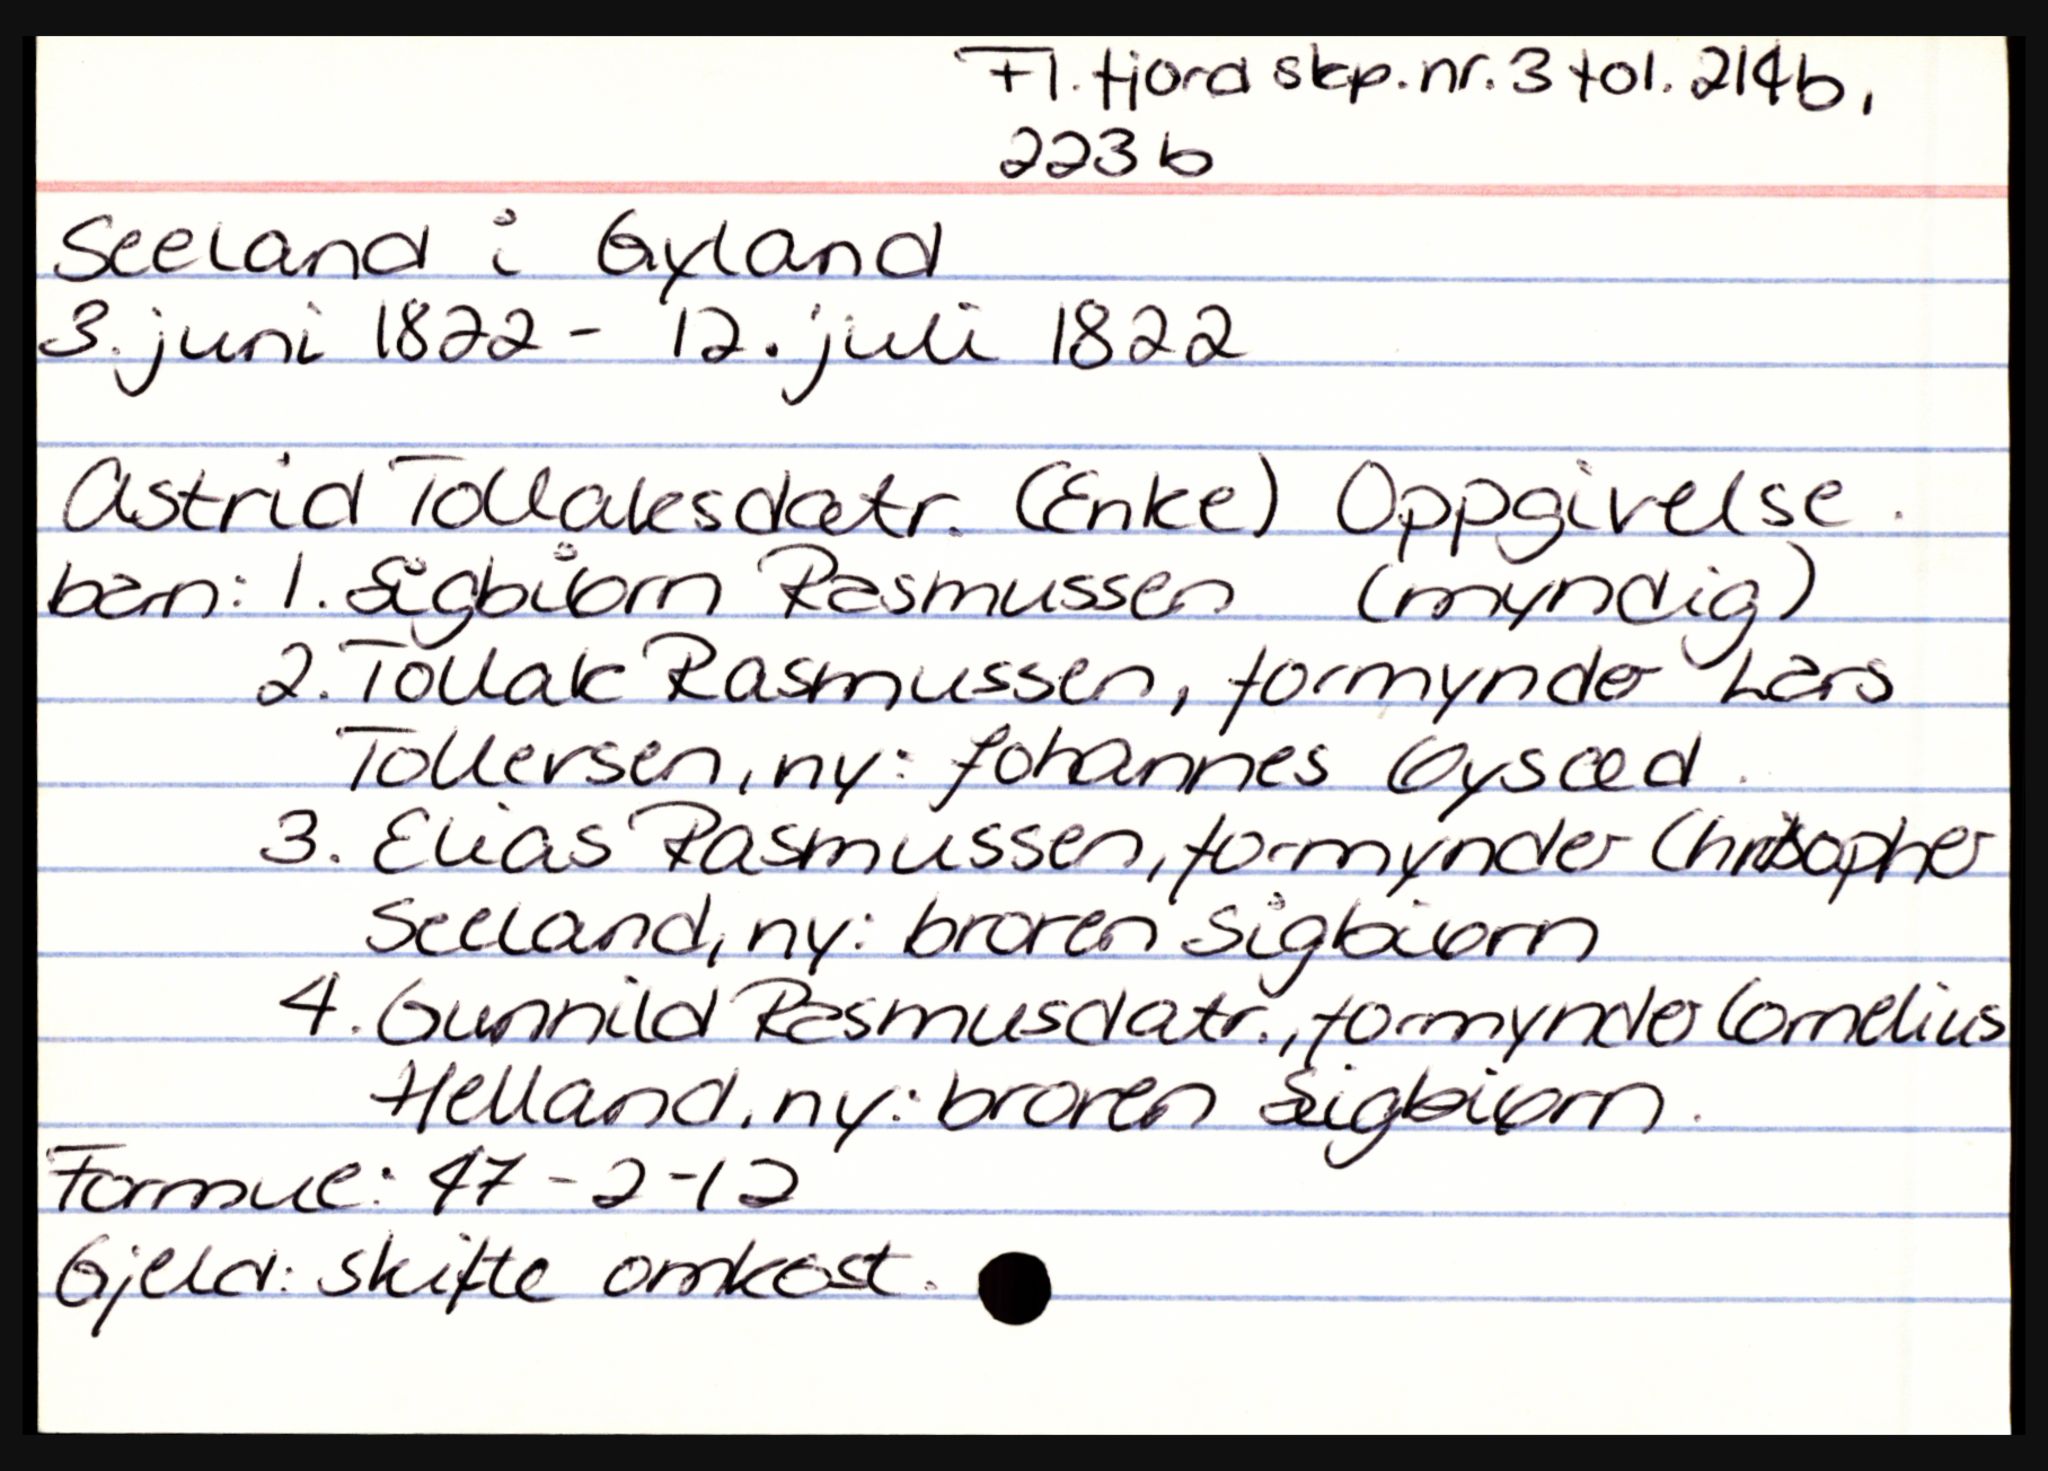 Fl.fjord skp.nr. 3 fol. 214b,
223b
Seeland i Gyland
3. juni 1822 - 12. juli 1822
Astrid Tollaksdatr. (Enke) Oppgivelse.
barn: 1. Sigbiørn Rasmussen (myndig)
2. Tollak Rasmussen, formynder Lars
Tollersen, ny: Johannes Øysæd.
3. Elias Rasmussen, formynder Christopher
Seeland, ny: broren Sigbiørn
4. Gunnild Rasmusdatr., formynder Cornelius
Helland, ny: broren Sigbiørn.
Formue: 47-2-12
Gjeld: skifte omkost.